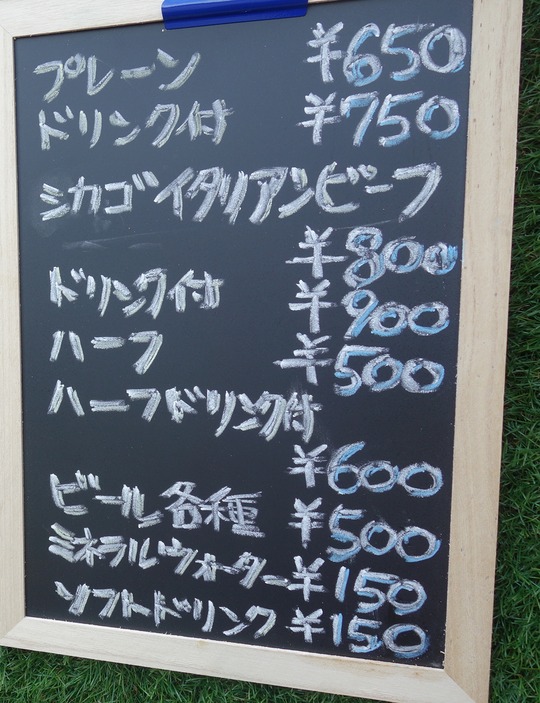 プレーン ¥650
ドリンク付 ¥750
シカゴイタリアンビーフ
¥800
ドリンク付 ¥900
ハーフ ¥500
ハーフドリンク付
¥600
ビール各種 ¥500
ミネラルウォーター ¥150
ソフトドリンク ¥150